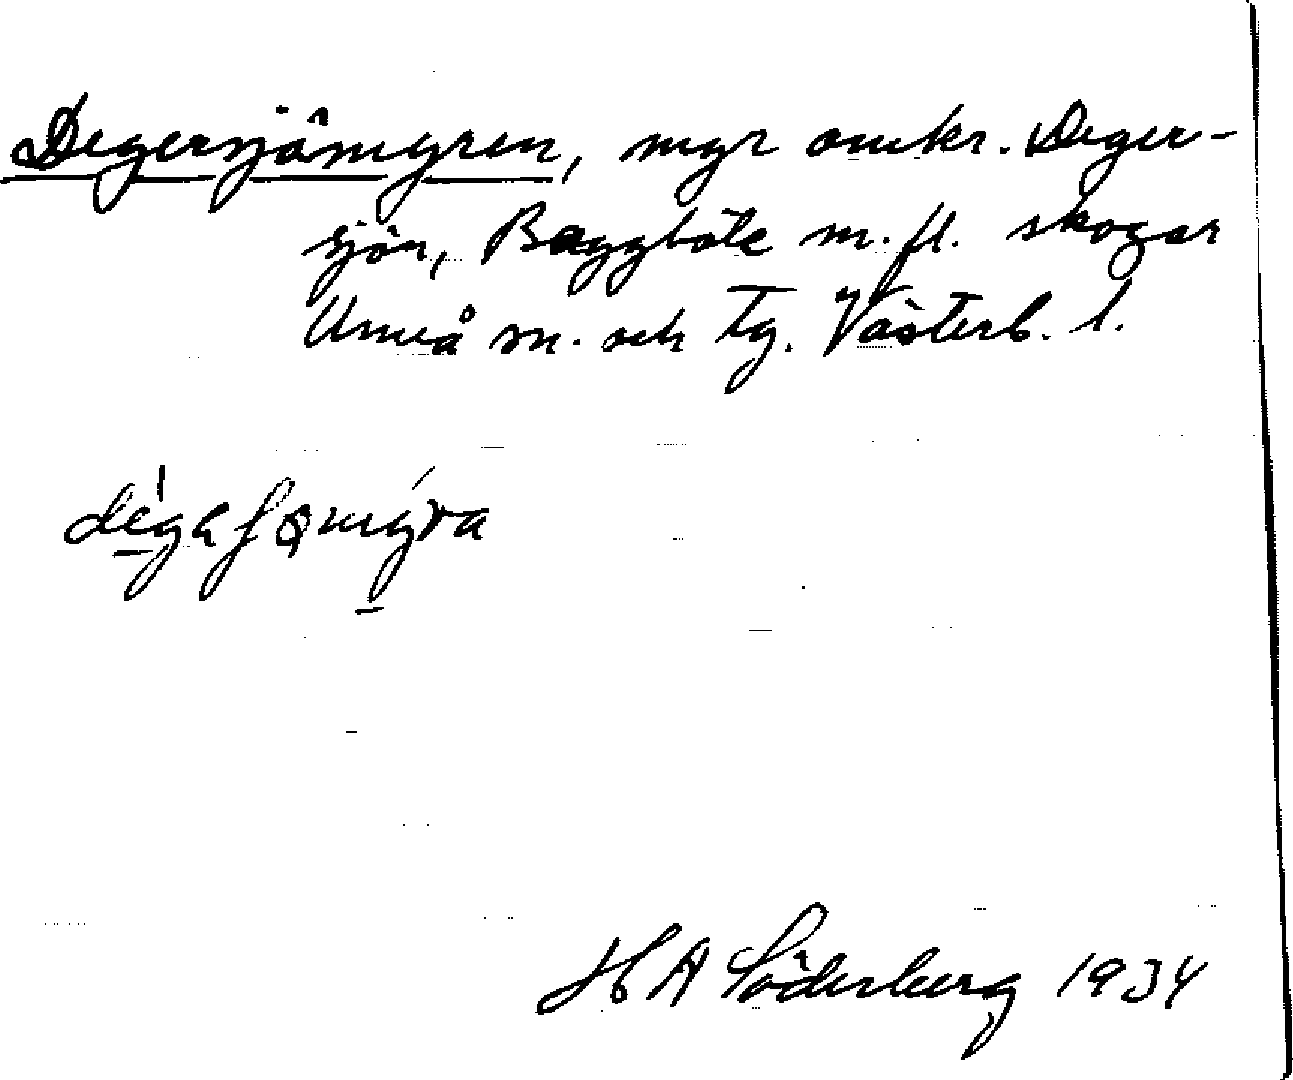 Degersjömyren, myr omkr. Deger-
sjön, Baggböle m. fl. skogar
Umeå sn. och tg. Västerb. l.
H A Söderberg 1934